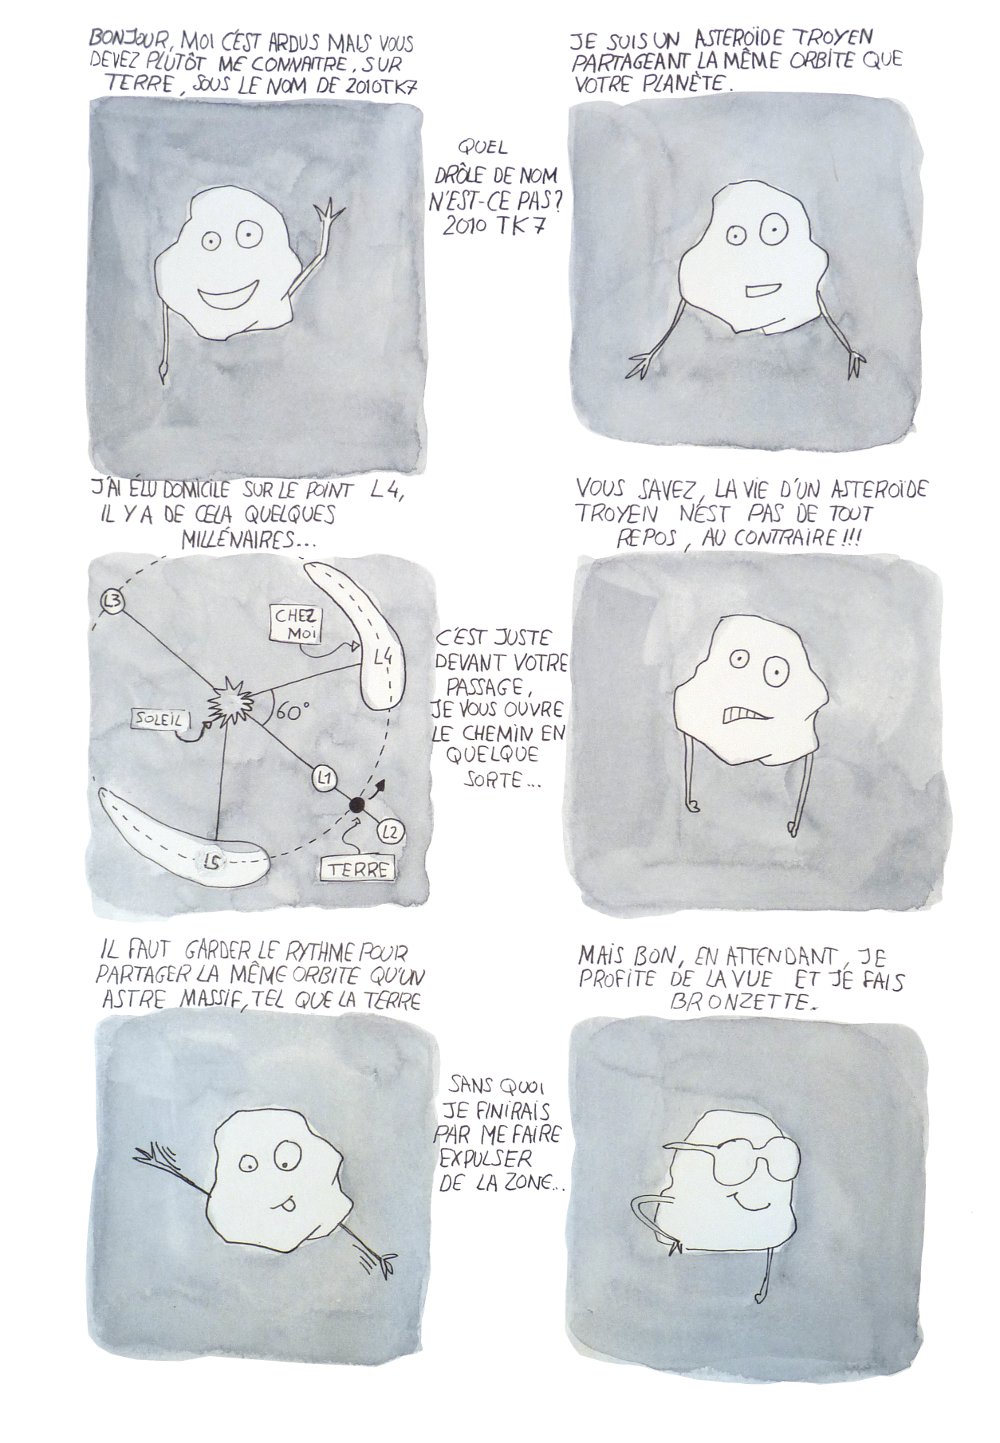 BONJOUR, MOI C'EST ARDUS MAIS VOUS
DEVEZ PLUTÔT ME CONNAITRE, SUR
TERRE, SOUS LE NOM DE 2010TK7
QUEL
DRÔLE DE NOM
N'EST-CE PAS?
2010 TK7
JE SUIS UN ASTEROÏDE TROYEN
PARTAGEANT LA MÊME ORBITE QUE
VOTRE PLANÈTE.
J'AI ÉLU DOMICILE SUR LE POINT L4,
IL Y A DE CELA QUELQUES
MILLÉNAIRES...
L3
CHEZ
MOI
L4
SOLEIL
60°
L1
L2
L5
TERRE
C'EST JUSTE
DEVANT VOTRE
PASSAGE,
JE VOUS OUVRE
LE CHEMIN EN
QUELQUE
SORTE...
VOUS SAVEZ, LA VIE D'UN ASTEROÏDE
TROYEN N'EST PAS DE TOUT
REPOS, AU CONTRAIRE!!!
IL FAUT GARDER LE RYTHME POUR
PARTAGER LA MÊME ORBITE QU'UN
ASTRE MASSIF, TEL QUE LA TERRE
SANS QUOI
JE FINIRAIS
PAR ME FAIRE
EXPULSER
DE LA ZONE...
MAIS BON, EN ATTENDANT, JE
PROFITE DE LA VUE ET JE FAIS
BRONZETTE.